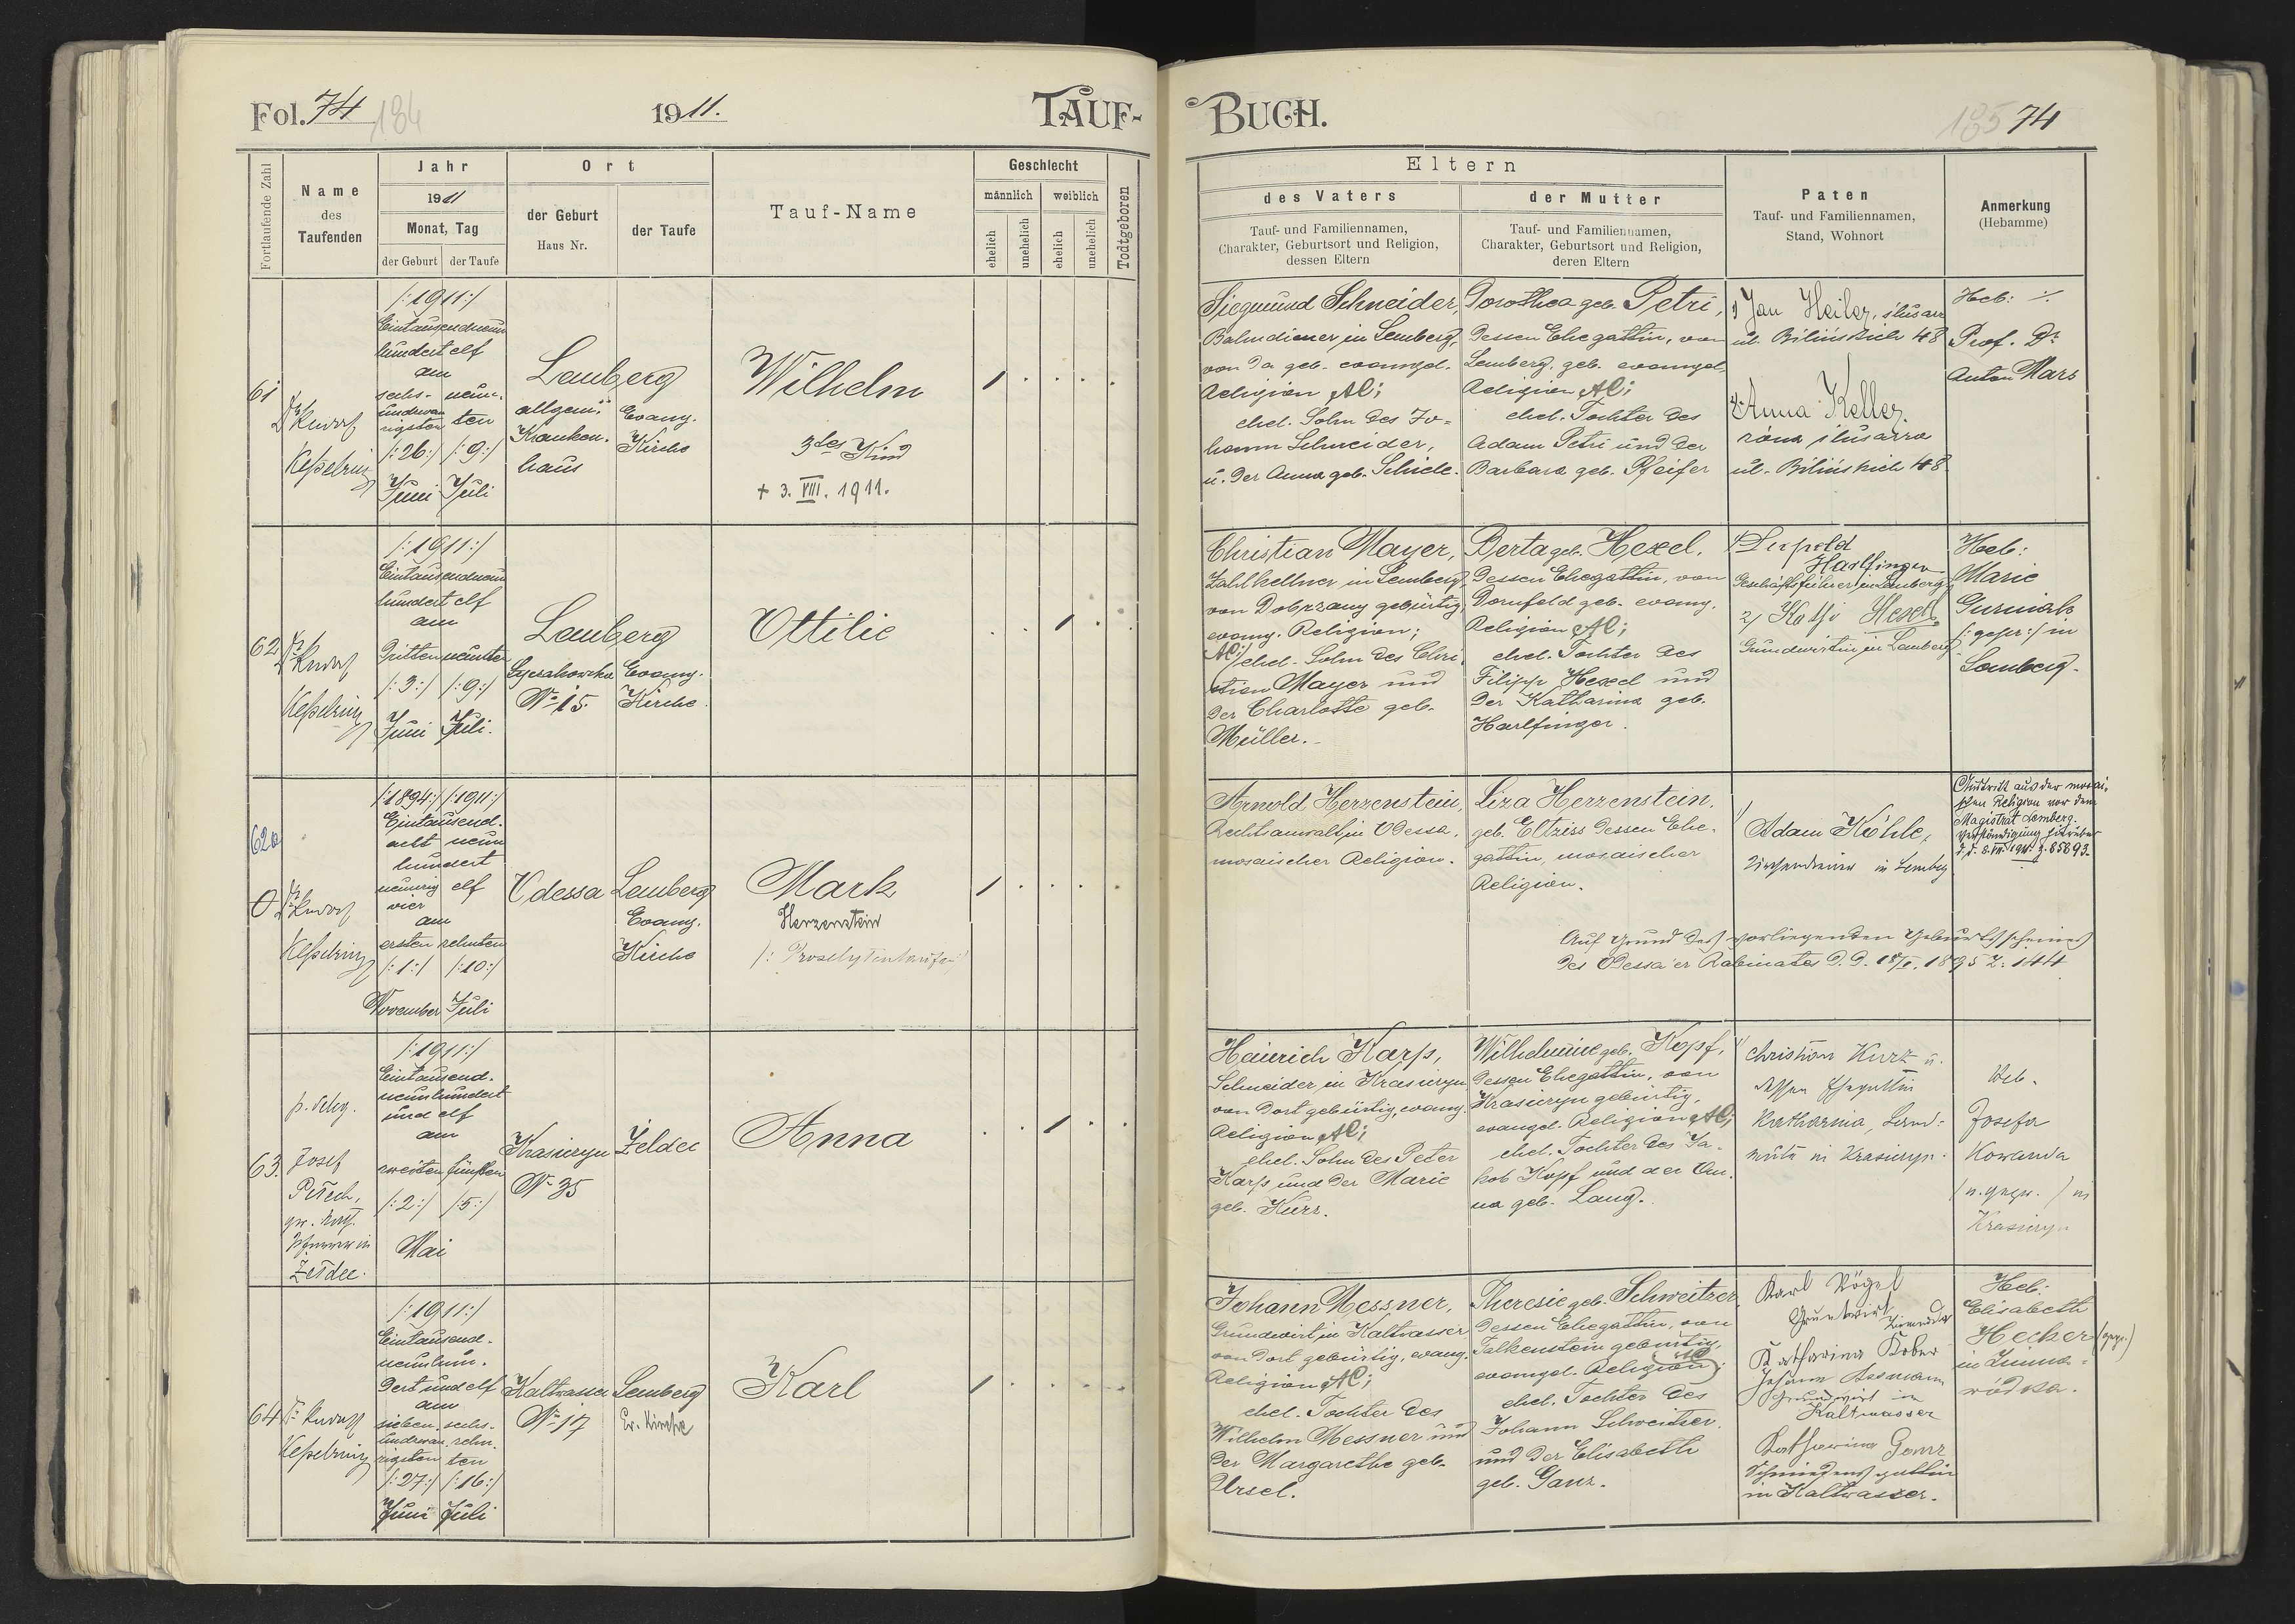 Fol. 74 184
1911.
TAUF-
Fortlaufende Zahl
Name
des
Taufenden
Jahr
1911
Monat, Tag
der Geburt der Taufe
Ort
der Geburt
Haus Nr.
der Taufe
Tauf-Name
Geschlecht
männlich weiblich
ehelich unehelich ehelich unehelich
Todtgeboren
61
Dr
Keßelring
/:1911:/
Eintausendneun
hundert elf
am
sechs- neun-
undzwan ten
zigsten
/:26:/ /:9:/
Juni Juli
Lemberg
allgem:
Kranken-
haus
Evang.
Kirche
Wilhelm
3tes Kind
+ 3. VIII. 1911.
62
Dr
Keßelring
/:1911:/
Eintausendneun
hundert elf
am
dritten neunten
/:3:/ /:9:/
Juni Juli.
Lemberg
Łyczakowska
No 15.
Evang.
Kirche
Ottilie
62a
0
Dr
Keßelring
/:1894:/ /:1911:/
Eintausend-
acht neun
hundert
neunzig elf
vier
am
ersten zehnten
/:1:/ /:10:/
November Juli
Odessa
Lemberg
Evang.
Kirche
Mark
Herzenstein
/: Proselytentaufe :/
63.
Josef
Pfarrer in
Żeldec.
/:1911:/
Eintausend-
neunhundert
und elf
am
zweiten fünften
/:2:/ /:5:/
Mai
Krasiczyn
No 35
Żeldec
Anna
64
Dr
Keßelring
/:1911:/
Eintausend-
neunhun-
dert und elf
am
sieben- sechs-
undzwan- zehn-
zigsten ten
/:27:/ /:16:/
Juni Juli
Kaltwasser
No 17
Lemberg
Ev. Kirche
Karl
BUCH.
185 74
Eltern
des Vaters
Tauf- und Familiennamen,
Charakter, Geburtsort und Religion,
dessen Eltern
der Mutter
Tauf- und Familiennamen,
Charakter, Geburtsort und Religion,
deren Eltern
Paten
Tauf- und Familiennamen,
Stand, Wohnort
Anmerkung
(Hebamme)
Siegmund Schneider,
Bahndiener in Lemberg,
von da geb. evangel.
Religion AC;
ehel. Sohn des Jo-
hann Schneider,
u. der Anna geb. Schiele.
Dorothea geb. Petri,
dessen Ehegattin, von
Lemberg, geb. evangel.
Religion AC;
ehel. Tochter des
Adam Petri und der
Barbara geb. Pfeifer
1) Jan Heiler, ślusarz
ul. Bilińskich 48
2) Anna Keller,
żona ślusarza
ul. Bilińskich 48
Heb: %
Prof. Dr
Anton Mars
Christian Mayer,
Zahlkellner in Lemberg,
von Dobrzany gebürtig,
evang. Religion;
AC; ehel. Sohn des Chri-
stian Mayer und
der Charlotte geb.
Müller.
Berta geb. Hexel,
dessen Ehegattin, von
Dornfeld geb. evang.
Religion AC;
ehel. Tochter des
Filipp Hexel und
der Katharina geb.
Harlfinger.
1/ Leopold
Harlfinger
Geschäftsführer in Lemberg
2/ Kathi Hexel
Grundwirtin in Lemberg
Heb:
Marie
Gurniak
/:gepr:/ in
Lemberg.
Arnold Herzenstein,
Rechtsanwalt in Odessa,
mosaischer Religion.
Liza Herzenstein,
geb. Eltziss dessen Ehe-
gattin, mosaischer
Religion.
1/ Adam Köhle,
Kirchendiener in Lemberg
Austritt aus der mosai-
schen Religion vor dem
Magistrat Lemberg.
Verständigung hierüber
d.d. 8.VII. 1911 Z. 85893.
Auf Grund des vorliegenden Geburtsscheines
des Odessa'er Rabinates d. d. 18/I. 1895 Z. 144
Heinrich Karp,
Schneider in Krasiczyn
von dort gebürtig, evang.
Religion AC;
ehel. Sohn des Peter
Karp und der Marie
geb. Kurz.
Wilhelmine geb. Kopf,
dessen Ehegattin, von
Krasiczyn gebürtig,
evangel. Religion AC;
ehel. Tochter des Ja-
kob Kopf und der An-
na geb. Lang.
1/ Christian Kurz u.
dessen Ehegattin
Katharina, Land-
wirte in Krasiczyn.
Heb.
Josefa
Kowanda
/ n. gepr. / in
Krasiczyn
Johann Messner,
Grundwirt in Kaltwasser
von dort gebürtig, evang.
Religion AC;
ehel. Tochter des
Wilhelm Messner und
der Margarethe geb.
Ursel.
Theresie geb. Schweitzer
dessen Ehegattin, von
Falkenstein gebürtig,
evangel. Religion AC;
ehel. Tochter des
Johann Schweitzer
und der Elisabeth
geb. Ganz.
Karl Vögel
Grundwirt
Katharina Kober
Johann Assmann
Grundwirt in
Kaltwasser
Katharina Ganz
Schmiedens gattin
in Kaltwasser.
Heb:
Elisabeth
Hecker (gepr.)
in Zimna-
wódka.